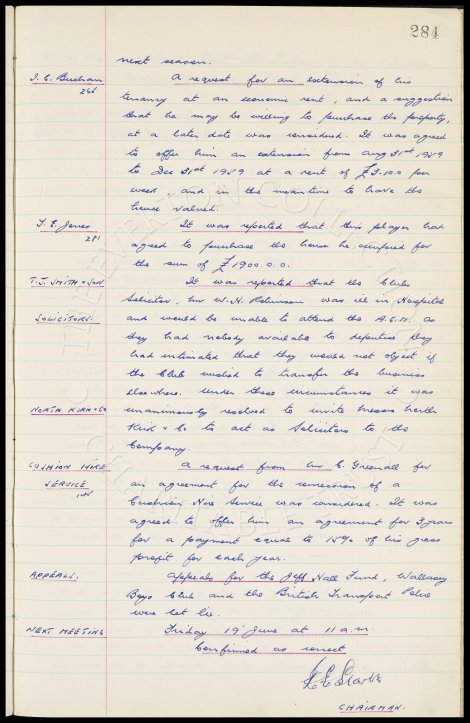 284
next season.
J. E. Bushan A request for an extension of his
268. tenancy at an economic rent, and a suggestion
that he may be willing to purchase the property,
at a later date was considered. It was agreed
to offer him an extension from Aug 31st 1959
to Dec 31st 1959 at a rent of £3.10.0 per
week, and in the meantime to have the
house valued.
T. E. Jones It was reported that this player had
281 agreed to purchase the house he occupied for
the sum of £1900.0.0.
T. J. SMITH & SON It was reported that the Clubs
Solicitor, Mr W. H. Robinson was ill in Hospital
SOLICITORS. and would be unable to attend the A.G.M. as
they had nobody available to deputise they
had intimated that they would not object if
the Club wished to transfer the business
elsewhere. Under these circumstances it was
NORTH KIRK & CO unanimously resolved to invite Messrs North
Kirk & Co to act as Solicitors to the
Company.
CUSHION HIRE A request from Mr C. Greenall for
SERVICE an agreement for the concession of a
Cushion Hire Service was considered. It was
agreed to offer him an agreement for 3 years
for a payment equal to 15% of his gross
profit for each year.
APPEALS. Appeals for the Jeff Hall Fund, Wallasey
Boys Club and the British Transport Police
were let lie.
NEXT MEETING Friday 19 June at 11 a.m.
Confirmed as correct
CHAIRMAN.